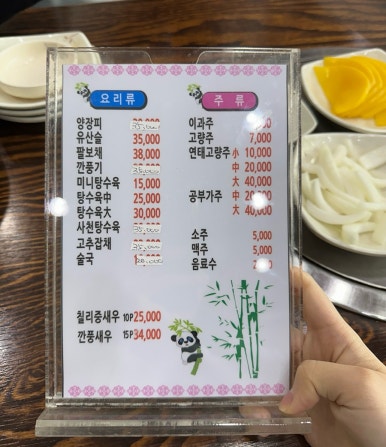 요리류
양장피
유산슬 35,000
팔보채 38,000
깐풍기
미니탕수육 15,000
탕수육中 25,000
탕수육大 30,000
사천탕수육
고추잡채
술국
칠리중새우 10P 25,000
깐풍새우 15P 34,000
주류
이과주
고량주 7,000
연태고량주 小 10,000
中 20,000
大 40,000
공부가주 中 20,000
大 40,000
소주 5,000
맥주 5,000
음료수